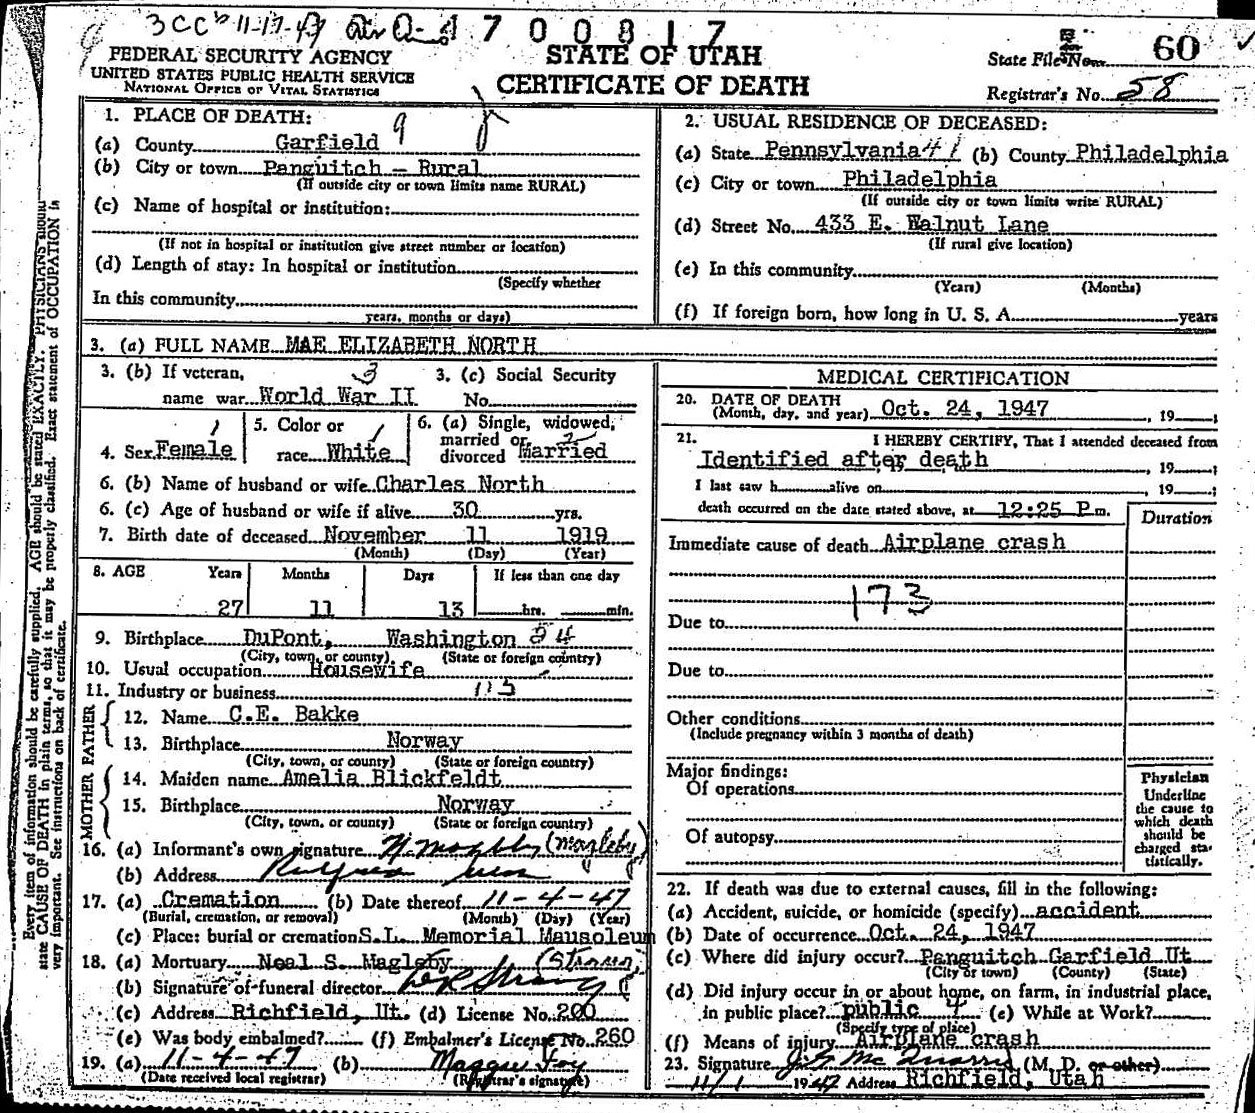 3 CC 11-17-47
700817
FEDERAL SECURITY AGENCY
UNITED STATES PUBLIC HEALTH SERVICE
NATIONAL OFFICE OF VITAL STATISTICS
STATE OF UTAH
CERTIFICATE OF DEATH
State File No. 60
Registrar's No. 58
1. PLACE OF DEATH: 9
(a) County Garfield
(b) City or town Panguitch — Rural
(If outside city or town limits name RURAL)
(c) Name of hospital or institution:
(If not in hospital or institution give street number or location)
(d) Length of stay: In hospital or institution
(Specify whether
In this community
years, months or days)
2. USUAL RESIDENCE OF DECEASED:
(a) State Pennsylvania 41 (b) County Philadelphia
(c) City or town Philadelphia
(If outside city or town limits write RURAL)
(d) Street No. 433 E. Walnut Lane
(If rural give location)
(e) In this community
(Years) (Months)
(f) If foreign born, how long in U. S. A. years
3. (a) FULL NAME MAE ELIZABETH NORTH
3. (b) If veteran, 3
name war World War II
3. (c) Social Security
No.
4. Sex Female 1
5. Color or
race White 1
6. (a) Single, widowed,
married or 2
divorced Married
6. (b) Name of husband or wife Charles North
6. (c) Age of husband or wife if alive 30 yrs.
7. Birth date of deceased November 11 1919
(Month) (Day) (Year)
8. AGE Years Months Days If less than one day
27 11 13 hrs. min.
9. Birthplace DuPont, Washington 94
(City, town, or county) (State or foreign country)
10. Usual occupation Housewife
11. Industry or business 115
FATHER
12. Name C.E. Bakke
13. Birthplace Norway
(City, town, or county) (State or foreign country)
MOTHER
14. Maiden name Amelia Blickfeldt
15. Birthplace Norway
(City, town, or county) (State or foreign country)
16. (a) Informant's own signature N. Magleby (Magleby)
(b) Address
17. (a) Cremation (b) Date thereof 11-4-47
(Burial, cremation, or removal) (Month) (Day) (Year)
(c) Place: burial or cremation S.L. Memorial Mausoleum
18. (a) Mortuary Neal S. Magleby
(b) Signature of funeral director
(c) Address Richfield, Ut. (d) License No. 200
(e) Was body embalmed? (f) Embalmer's License No. 260
19. (a) 11-4-47 (b) Maggie Foy
(Date received local registrar) (Registrar's signature)
MEDICAL CERTIFICATION
20. DATE OF DEATH
(Month, day, and year) Oct. 24, 1947, 19 ;
21. I HEREBY CERTIFY, That I attended deceased from
Identified after death, 19 ;
I last saw h alive on , 19 ;
death occurred on the date stated above, at 12:25 P.m.
Duration
Immediate cause of death Airplane crash
173
Due to
Due to
Other conditions
(Include pregnancy within 3 months of death)
Major findings:
Of operations
Of autopsy
Physician
Underline
the cause to
which death
should be
charged sta-
tistically.
22. If death was due to external causes, fill in the following:
(a) Accident, suicide, or homicide (specify) accident
(b) Date of occurrence Oct. 24, 1947
(c) Where did injury occur? Panguitch Garfield Ut
(City or town) (County) (State)
(d) Did injury occur in or about home, on farm, in industrial place,
in public place? public 4 (e) While at Work?
(Specify type of place)
(f) Means of injury Airplane crash
23. Signature J. G. McQuarrie (M. D. or other)
11/1 1947 Address Richfield, Utah
Every item of information should be carefully supplied. AGE should be stated EXACTLY. PHYSICIANS should
state CAUSE OF DEATH in plain terms, so that it may be properly classified. Exact statement of OCCUPATION is
very important. See instructions on back of certificate.